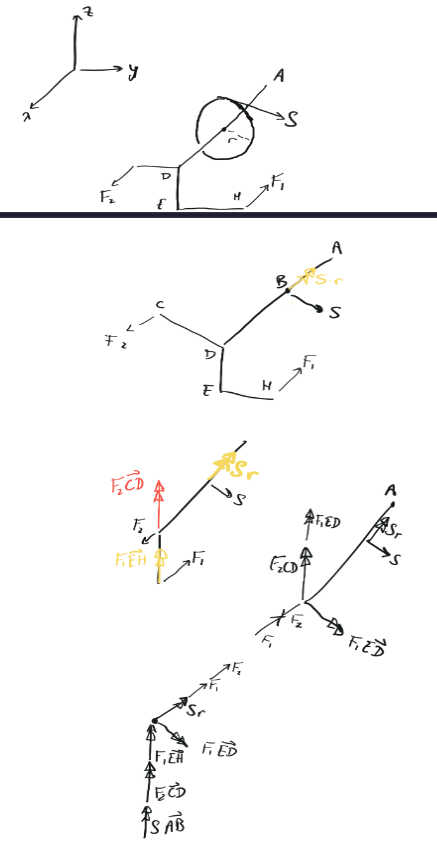 z
y
x
A
S
r
D
F₂
E
H
F₁
A
B
S·r
S
C
F₂
D
F₁
E
H
F₂C⃗D
Sr
S
F₂
F₁E⃗H
F₁
A
F₁ED
Sr
S
F₂CD
F₂
F₁
F₁E⃗D
F₂
F₁
Sr
F₁E⃗D
F₁E⃗H
F₂C⃗D
S A⃗B